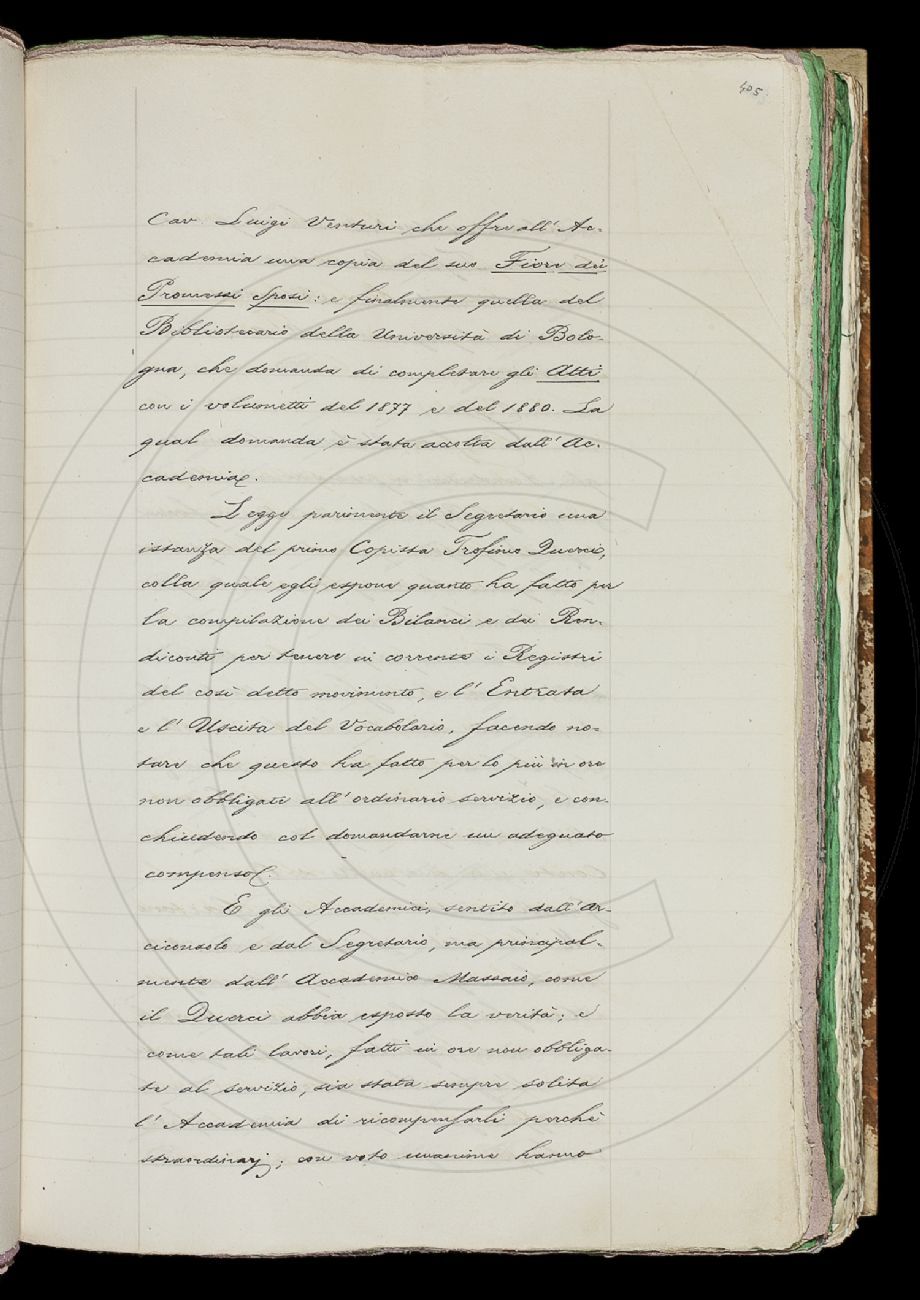 405
Cav. Luigi Venturi che offre all' Ac-
cademia una copia del suo Fiore dei
Promessi Sposi: e finalmente quella del
Bibliotecario della Università di Bolo-
gna, che domanda di completare gli Atti
con i volumetti del 1877 e del 1880. La
qual domanda è stata accolta dall' Ac-
cademia.
Legge parimente il Segretario una
istanza del primo Copista Trofimo Querci,
colla quale egli espone quanto ha fatto per
la compilazione dei Bilanci e dei Ren-
diconti per tenere in corrente i Registri
del così detto movimento, e l' Entrata
e l' Uscita del Vocabolario, facendo no-
tare che questo ha fatto per lo più in ore
non obbligate all' ordinario servizio, e con-
chiudendo col domandarne un adeguato
compenso.
E gli Accademici, sentito dall' Ar-
ciconsolo e dal Segretario, ma principal-
mente dall' Accademico Massaio, come
il Querci abbia esposto la verità; e
come tali lavori, fatti in ore non obbliga-
te al servizio, sia stata sempre solita
l' Accademia di ricompensarli perchè
straordinarj; con voto unanime hanno